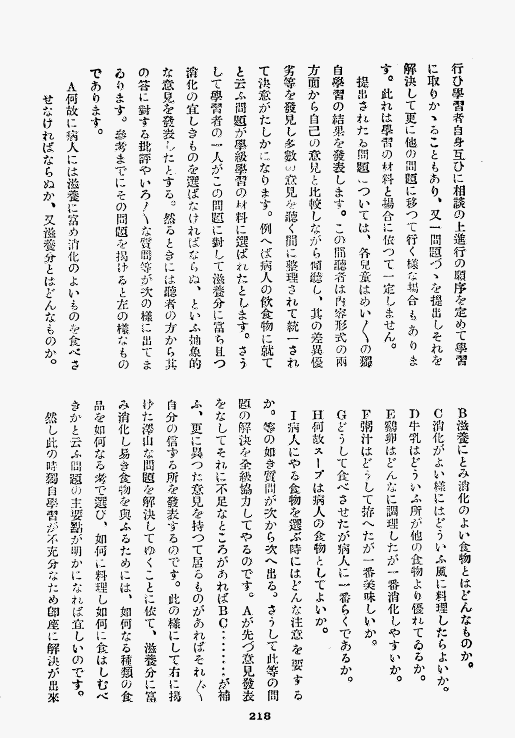 行ひ學習者自身互ひに相談の上進行の順序を定めて學習
に取りかゝることもあり、又一問題づゝを提出しそれを
解決して更に他の問題に移つて行く樣な場合もありま
す。此れは學習の材料と場合に依つて一定しません。
提出されたる問題については、各兒童はめい〳〵の獨
自學習の結果を發表します。この間聽者は内容形式の兩
方面から自己の意見と比較しながら傾聽し、其の差異優
劣等を發見し多數の意見を聽く間に整理されて統一され
て決意がたしかになります。例へば病人の飮食物に就て
と云ふ問題が學級學習の材料に選ばれたとします。さう
して學習者の一人がこの問題に對して滋養分に富ち且つ
消化の宜しきものを選ばなければならぬ、といふ抽象的
な意見を發表したとする。然るときには聽者の方から其
の答に對する批評やいろ〳〵な質問等が次の樣に出てま
ゐります。參考までにその問題を揭けると左の樣なもの
であります。
A何故に病人には滋養に富め消化のよいものを食べさ
せなければならぬか、又滋養分とはどんなものか。
B滋養にとみ消化のよい食物とはどんなものか。
C消化がよい樣にはどういふ風に料理したらよいか。
D牛乳はどういふ所が他の食物より優れてゐるか。
E鷄卵はどんなに調理したが一番消化しやすいか。
F粥汁はどうして拵へたが一番美味しいか。
Gどうして食べさせたが病人に一番らくであるか。
H何故スープは病人の食物としてよいか。
I病人にやる食物を選ぶ時にはどんな注意を要する
か。等の如き質問が次から次へ出る。さうして此等の問
題の解決を全級協力してやるのです。Aが先づ意見發表
をなしてそれに不足なところがあればBC………が補
ふ、更に異つた意見を持つて居るものがあればそれ〴〵
自分の信ずる所を發表するのです。此の樣にして右に揭
けた澤山な問題を解決してゆくことに依て、滋養分に富
み消化し易き食物を與ふるためには、如何なる種類の食
品を如何なる考で選び、如何に料理し如何に食はしむべ
きかと云ふ問題の主要點が明かになれば宜しいのです。
然し此の時獨自學習が不充分なため卽座に解決が出來
218